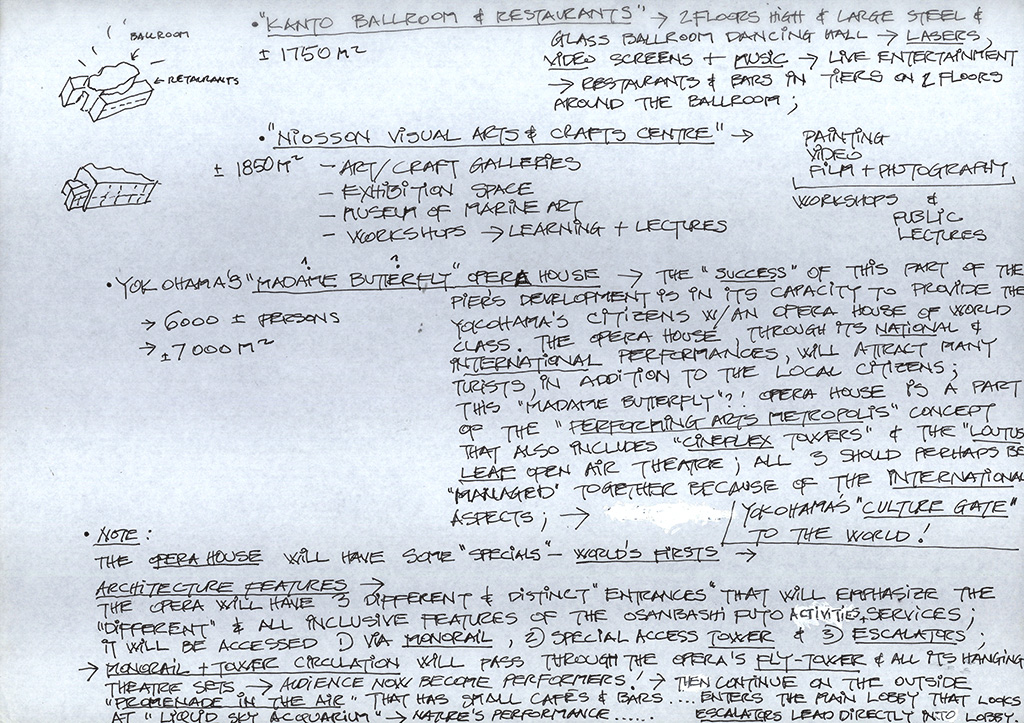 • "KANTO BALLROOM & RESTAURANTS" → 2 FLOORS HIGH & LARGE STEEL &
BALLROOM
± 1750 M²
GLASS BALLROOM DANCING HALL → LASERS,
VIDEO SCREENS + MUSIC → LIVE ENTERTAINMENT
RETAURANTS
→ RESTAURANTS & BARS IN TIERS ON 2 FLOORS
AROUND THE BALLROOM;
• "NIOSSON VISUAL ARTS & CRAFTS CENTRE" →
± 1850 M²
– ART/CRAFT GALLERIES
– EXHIBITION SPACE
– MUSEUM OF MARINE ART
– WORKSHOPS → LEARNING + LECTURES
PAINTING
VIDEO
FILM + PHOTOGRAPHY
WORKSHOPS &
PUBLIC
LECTURES
? ?
• YOKOHAMA'S "MADAME BUTTERFLY" OPERA HOUSE → THE "SUCCESS" OF THIS PART OF THE
→ 6000 ± PERSONS
→ ± 7000 M²
PIERS DEVELOPMENT IS IN ITS CAPACITY TO PROVIDE THE
YOKOHAMA'S CITIZENS W/AN OPERA HOUSE OF WORLD
CLASS. THE OPERA HOUSE, THROUGH ITS NATIONAL &
INTERNATIONAL PERFORMANCES, WILL ATTRACT MANY
TURISTS, IN ADDITION TO THE LOCAL CITIZENS;
THIS "MADAME BUTTERFLY"?! OPERA HOUSE IS A PART
OF THE "PERFORMING ARTS METROPOLIS" CONCEPT
THAT ALSO INCLUDES "CINEFLEX TOWERS" & THE "LOUTUS
LEAF OPEN AIR THEATRE; ALL 3 SHOULD PERHAPS BE
"MANAGED" TOGETHER BECAUSE OF THE INTERNATIONAL
ASPECTS; →
YOKOHAMA'S "CULTURE GATE"
TO THE WORLD!
• NOTE:
THE OPERA HOUSE WILL HAVE SOME "SPECIALS" – WORLD'S FIRSTS →
ARCHITECTURE FEATURES →
THE OPERA WILL HAVE 3 DIFFERENT & DISTINCT "ENTRANCES" THAT WILL EMPHASIZE THE
"DIFFERENT" & ALL INCLUSIVE FEATURES OF THE OSANBASHI FUTO ACTIVITIES + SERVICES;
IT WILL BE ACCESSED 1) VIA MONORAIL, 2) SPECIAL ACCESS TOWER & 3) ESCALATORS;
→ MONORAIL + TOWER CIRCULATION WILL PASS THROUGH THE OPERA'S FLY-TOWER & ALL ITS HANGING
THEATRE SETS → AUDIENCE NOW BECOME PERFORMERS! → THEN CONTINUE ON THE OUTSIDE
"PROMENADE IN THE AIR" THAT HAS SMALL CAFÉS & BARS .... ENTERS THE MAIN LOBBY THAT LOOKS
AT "LIQUID SKY ACQUARIUM" → NATURE'S PERFORMANCE ...... ESCALATORS LEAD DIRECTLY INTO LOBBY